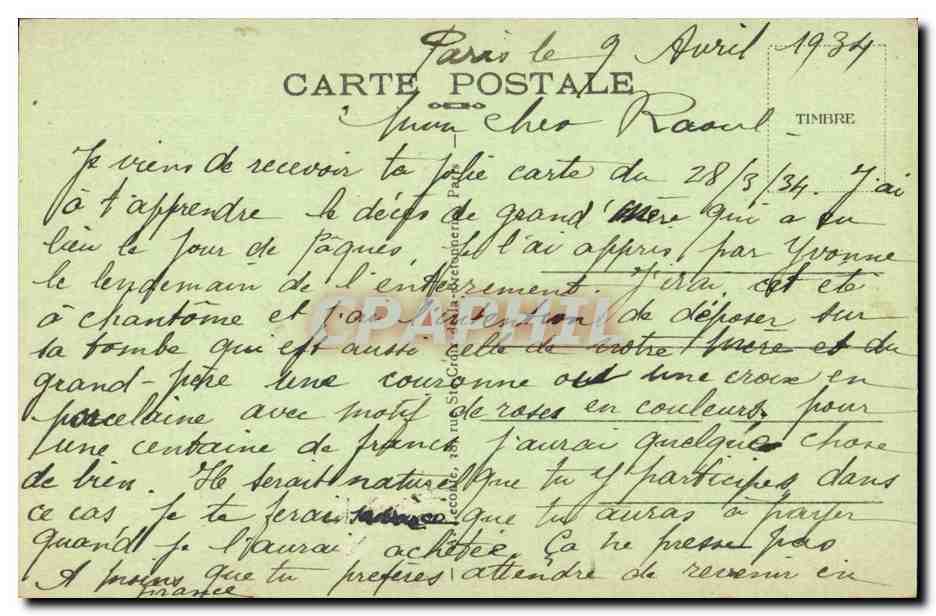 Paris le 9 Avril 1934
CARTE POSTALE
TIMBRE
Mon cher Raoul
Je viens de recevoir ta jolie carte du 28/3/34. J'ai
à t'apprendre le décès de grand'mère qui a eu
lieu le jour de Pâques, je l'ai appris par Yvonne
le lendemain de l'enterrement. J'irai cet été
à chantôme et j'ai l'intention de déposer sur
sa tombe qui est aussi celle de notre mère et du
grand-père une couronne ou une croix en
porcelaine avec motif de roses en couleurs. pour
une centaine de francs j'aurai quelque chose
de bien. Il serait naturel que tu y participes, dans
ce cas je te ferai savoir ce que tu auras à payer
quand je l'aurai achetée. Ça ne presse pas
A moins que tu préfères attendre de revenir en
france
Leconte, 38, rue Ste-Croix-de-la-Bretonnerie, Paris
CPAPHIL